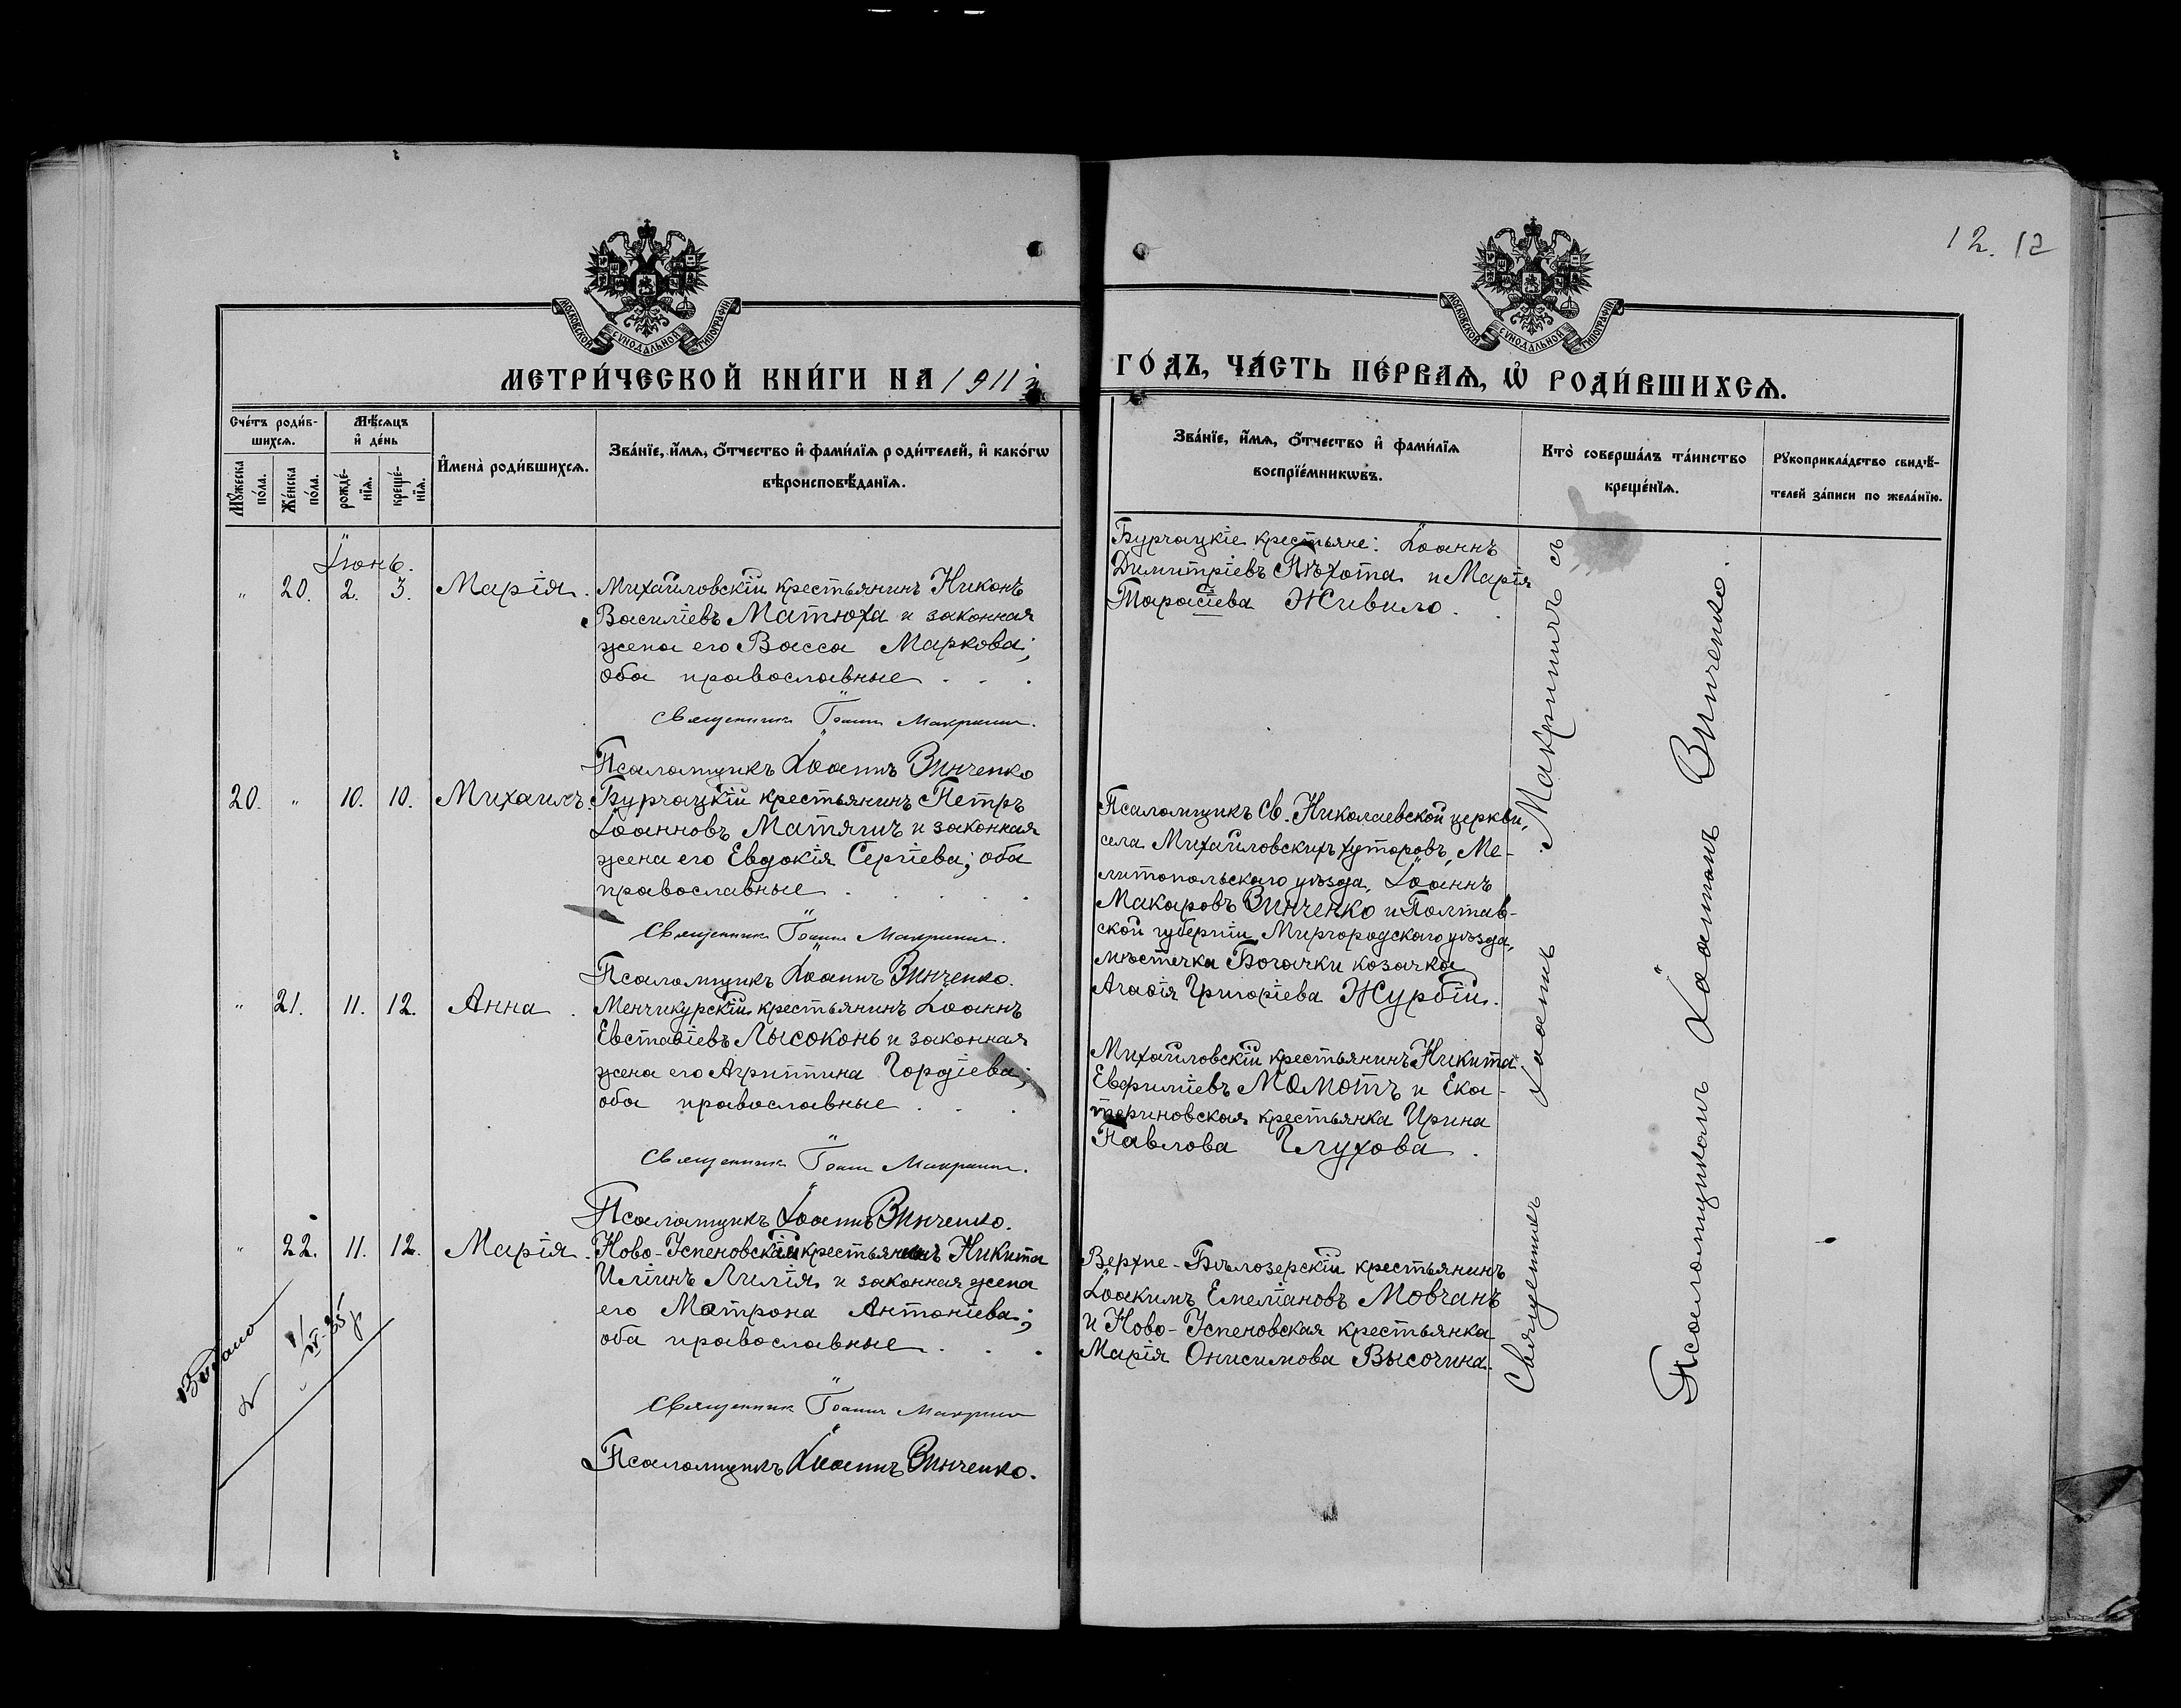 12. 12
МОСКОВСКОЙ СѴНОДАЛЬНОЙ ТИПОГРАФІИ
МОСКОВСКОЙ СѴНОДАЛЬНОЙ ТИПОГРАФІИ
МЕТРИ́ЧЕСКОЙ КНИ́ГИ НА 1911 й
ГО́ДЪ, ЧА́СТЬ ПЕ́РВАѦ, Ѡ҆ РОДИ́ВШИХСѦ.
Сче́тъ роди́в-
шихсѧ.
Мꙋ́жеска по́ла.
Же́нска по́ла.
Мѣ́сѧцъ
и҆ де́нь
рожде́-
нїѧ.
креще́-
нїѧ.
И҆мена̀ роди́вшихсѧ.
Зва́нїе, и҆́мѧ, ѻ҆́тчество и҆ фами́лїѧ роди́телей, и҆ како́гѡ
вѣроисповѣ́данїѧ.
Зва́нїе, и҆́мѧ, ѻ҆́тчество и҆ фами́лїѧ
воспрїе́мникѡвъ.
Кто̀ соверша́лъ та́инство
креще́нїѧ.
Рꙋкоприкла́дство свидѣ́-
телей за́писи по жела́нїю.
Іюнь.
„ 20. 2. 3. Марія.
Михайловскій крестьянинъ Никонъ
Василіевъ Матюха и законная
жена его Васса Маркова;
оба православные . . .
Священникъ Іоаннъ Макринич.
Псаломщикъ Іоаннъ Винченко
Бурчацкіе крестьяне: Іоаннъ
Димитріевъ Пѣхота и Марія
Тарасіева Живило.
20. „ 10. 10. Михаилъ.
Бурчацкій крестьянинъ Петръ
Іоанновъ Матяшъ и законная
жена его Евдокія Сергіева; оба
православные . . . .
Священникъ Іоаннъ Макринич.
Псаломщикъ Іоаннъ Винченко.
Псаломщикъ Св. Николаевской церкви,
села Михайловскихъ хуторовъ, Ме-
литопольскаго уѣзда, Іоаннъ
Макаровъ Винченко и Полтав-
ской губерніи, Миргородскаго уѣзда,
мѣстечка Богачки козачка
Агаѳія Григоріева Журбій.
„ 21. 11. 12. Анна.
Менчикурскій крестьянинъ Іоаннъ
Евстаѳіевъ Лысоконь и законная
жена его Агриппина Гордіева;
оба православные . . .
Священникъ Іоаннъ Макринич.
Псаломщикъ Іоаннъ Винченко.
Михайловскій крестьянинъ Никита
Евфиміевъ Момотъ и Ека-
териновская крестьянка Ирина
Павлова Глухова.
„ 22. 11. 12. Марія.
Ново-Успеновскій крестьянинъ Никита
Иліинъ Лилія и законная жена
его Матрона Антоніева;
оба православные . . .
Священникъ Іоаннъ Макринич
Псаломщикъ Іоаннъ Винченко.
Верхне-Бѣлозерскій крестьянинъ
Іоакимъ Емеліановъ Мовчанъ
и Ново-Успеновская крестьянка
Марія Онисимова Высочина.
Священникъ Іоаннъ Макриничъ съ
Псаломщикомъ Іоанномъ Винченко.